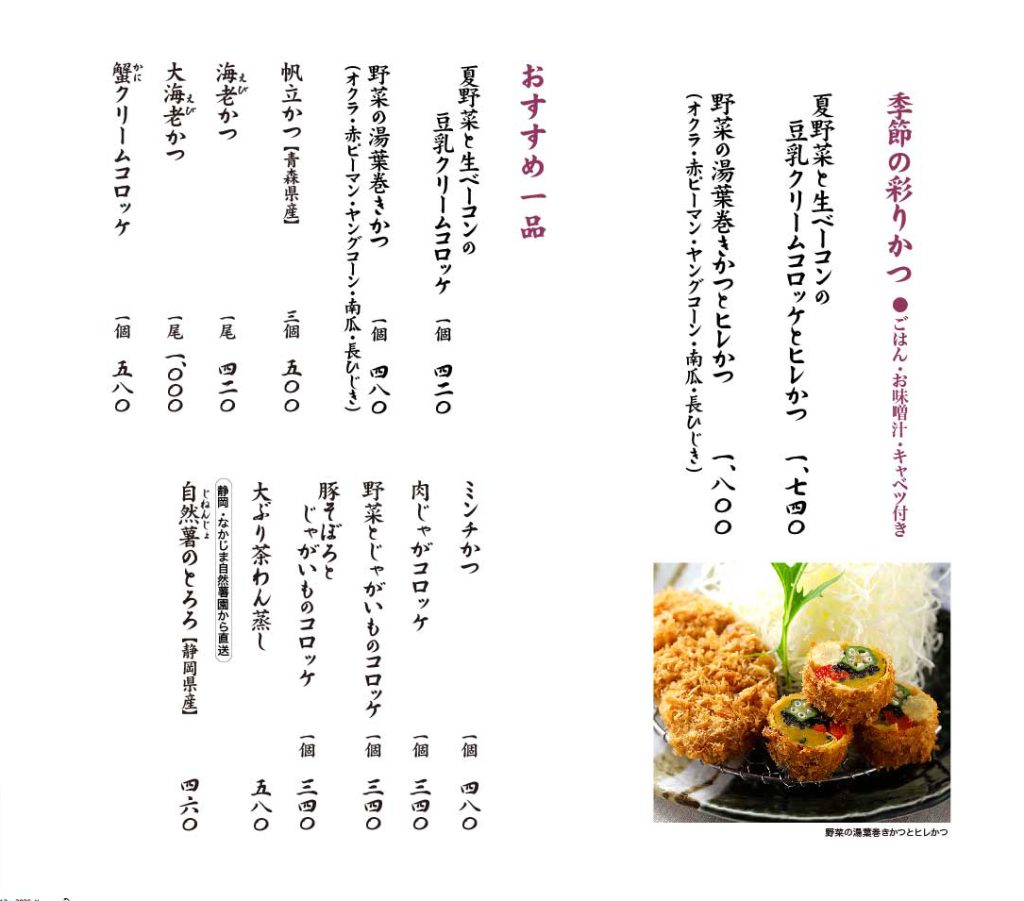 季節の彩りかつ ●ごはん・お味噌汁・キャベツ付き
夏野菜と生ベーコンの
豆乳クリームコロッケとヒレかつ 一、七四〇
野菜の湯葉巻きかつとヒレかつ 一、八〇〇
(オクラ・赤ピーマン・ヤングコーン・南瓜・長ひじき)
野菜の湯葉巻きかつとヒレかつ
おすすめ一品
夏野菜と生ベーコンの
豆乳クリームコロッケ 一個 四二〇
野菜の湯葉巻きかつ 一個 四八〇
(オクラ・赤ピーマン・ヤングコーン・南瓜・長ひじき)
帆立かつ【青森県産】 三個 五〇〇
海老かつ 一尾 四二〇
えび
大海老かつ 一尾 一、〇〇〇
えび
蟹クリームコロッケ 一個 五八〇
かに
ミンチかつ 一個 四八〇
肉じゃがコロッケ 一個 三四〇
野菜とじゃがいものコロッケ 一個 三四〇
豚そぼろと
じゃがいものコロッケ 一個 三四〇
大ぶり茶わん蒸し 五八〇
静岡・なかじま自然薯園から直送
自然薯のとろろ【静岡県産】 四六〇
じねんじょ